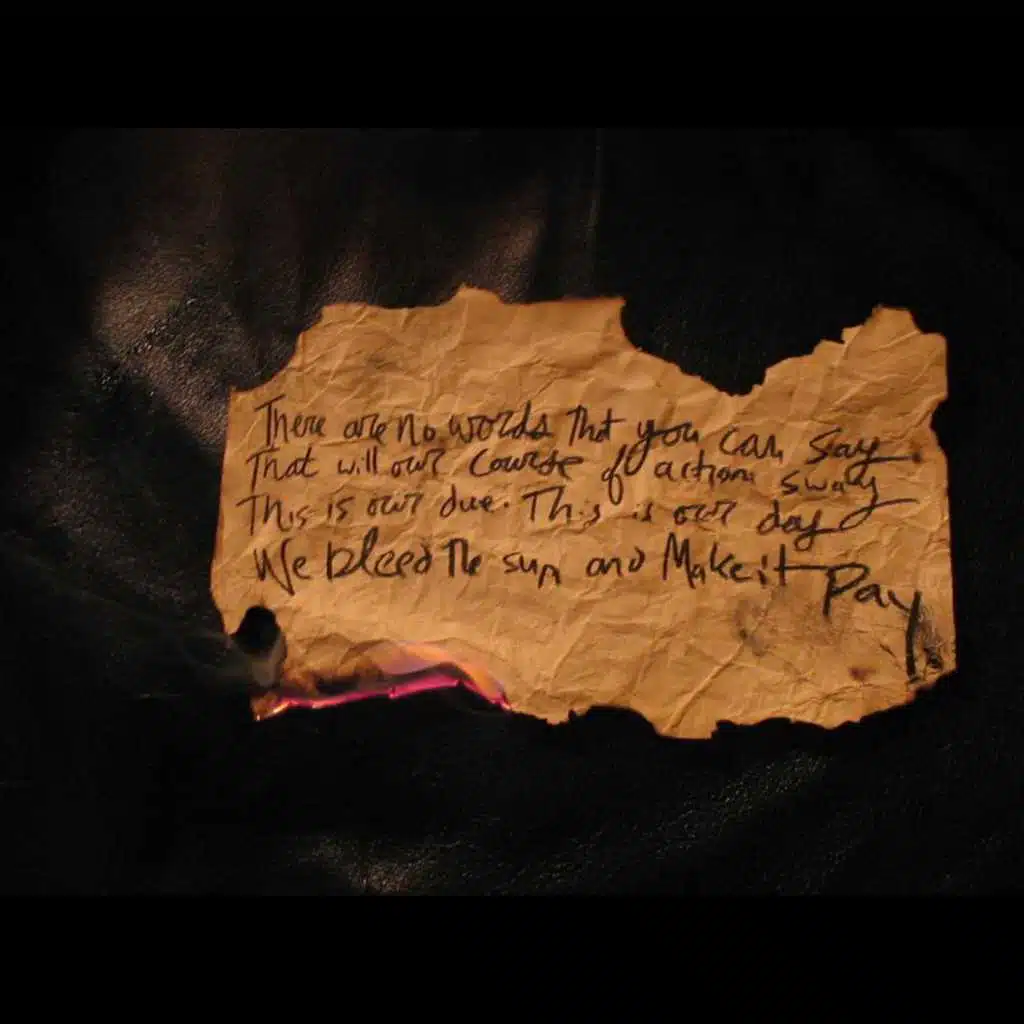 There are no words that you can say
That will our course of action sway
This is our due. This is our day
We bleed the sun and Make it Pay